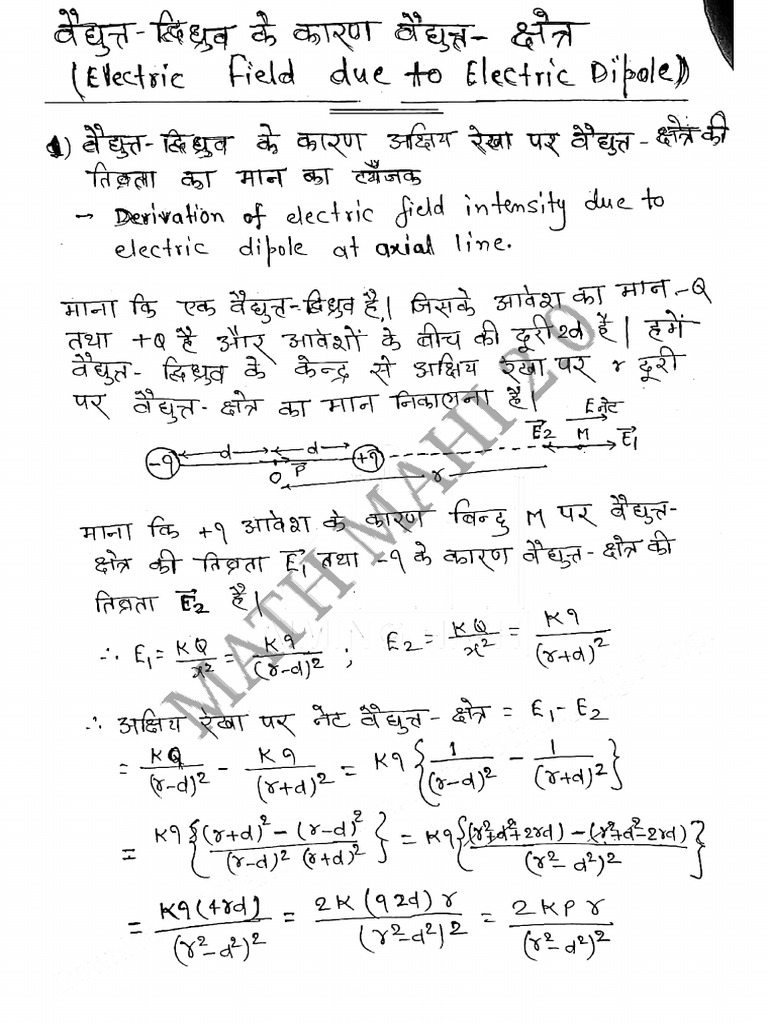 वैद्युत-द्विध्रुव के कारण वैद्युत- क्षेत्र
(Electric field due to Electric Dipole)
1) वैद्युत-द्विध्रुव के कारण अक्षिय रेखा पर वैद्युत-क्षेत्र की
तिव्रता का मान का व्यँजक
→ Derivation of electric field intensity due to
electric dipole at axial line.
माना कि एक वैद्युत-द्विध्रुव है, जिसके आवेश का मान -Q
तथा +Q है और आवेशों के बीच की दूरी 2d है। हमें
वैद्युत- द्विध्रुव के केन्द्र से अक्षिय रेखा पर r दूरी
पर वैद्युत-क्षेत्र का मान निकालना है।
E नेट
-q d d +q E⃗2 M E⃗1
O P⃗
r
माना कि +q आवेश के कारण बिन्दु M पर वैद्युत-
क्षेत्र की तिव्रता E⃗1 तथा -q के कारण वैद्युत-क्षेत्र की
तिव्रता E⃗2 है।
∴ E1 = KQ/x² = Kq/(r-d)² ; E2 = KQ/x² = Kq/(r+d)²
∴ अक्षिय रेखा पर नेट वैद्युत- क्षेत्र = E1 - E2
= KQ/(r-d)² - Kq/(r+d)² = Kq {1/(r-d)² - 1/(r+d)²}
= Kq {(r+d)² - (r-d)²/(r-d)² (r+d)²} = Kq {(r²+d²+2rd) - (r²+d²-2rd)/(r²-d²)²}
= Kq(4rd)/(r²-d²)² = 2K(q2d)r/(r²-d²)² = 2KPr/(r²-d²)²
MATH MAHI 2.0